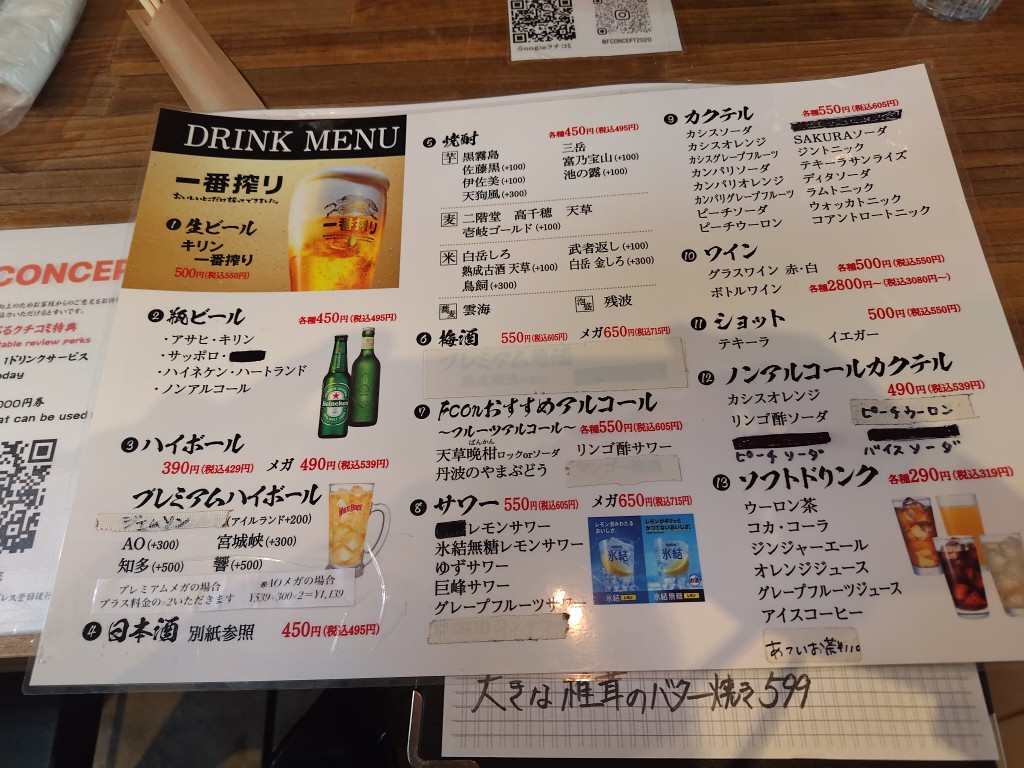 Googleクチコミ
@FCONCEPT2020
CONCEP
るクチコミ特典
table review perks
1ドリンクサービス
DRINK MENU
一番搾り
おいしいとこだけ搾ってできました。
一番搾り
❶ 生ビール
キリン
一番搾り
500円(税込550円)
❷ 瓶ビール
各種450円(税込495円)
・アサヒ・キリン
・サッポロ・
・ハイネケン・ハートランド
・ノンアルコール
Heineken
❸ ハイボール
390円(税込429円) メガ 490円(税込539円)
プレミアムハイボール
ジェムソン (アイルランド+200)
AO(+300) 宮城峡(+300)
知多(+500) 響(+500)
プレミアムメガの場合
プラス料金の×2いただきます
※AOメガの場合
¥539+300×2=¥1,139
❹ 日本酒 別紙参照 450円(税込495円)
❺ 焼酎 各種450円(税込495円)
芋 黒霧島 三岳
佐藤黒(+100) 富乃宝山(+100)
伊佐美(+100) 池の露(+100)
天狗風(+300)
麦 二階堂 高千穂 天草
壱岐ゴールド(+100)
米 白岳しろ 武者返し(+100)
熟成古酒 天草(+100) 白岳 金しろ(+300)
鳥飼(+300)
蕎麦 雲海 泡盛 残波
❻ 梅酒 550円(税込605円) メガ650円(税込715円)
❼ Fconおすすめアルコール
〜フルーツアルコール〜 各種550円(税込605円)
ばんかん
天草晩柑ロックorソーダ リンゴ酢サワー
丹波のやまぶどう
❽ サワー 550円(税込605円) メガ650円(税込715円)
レモンサワー
氷結無糖レモンサワー
ゆずサワー
巨峰サワー
グレープフルーツサワー
氷結
氷結
氷結無糖 レモン
❾ カクテル 各種550円(税込605円)
カシスソーダ
カシスオレンジ SAKURAソーダ
カシスグレープフルーツ ジントニック
カンパリソーダ テキーラサンライズ
カンパリオレンジ ディタソーダ
カンパリグレープフルーツ ラムトニック
ピーチソーダ ウォッカトニック
ピーチウーロン コアントロートニック
❿ ワイン
グラスワイン 赤・白 各種500円(税込550円)
ボトルワイン 各種2800円〜(税込3080円〜)
⓫ ショット 500円(税込550円)
テキーラ イエガー
⓬ ノンアルコールカクテル
490円(税込539円)
カシスオレンジ ピーチウーロン
リンゴ酢ソーダ
ピーチソーダ バイスソーダ
⓭ ソフトドリンク 各種290円(税込319円)
ウーロン茶
コカ・コーラ
ジンジャーエール
オレンジジュース
グレープフルーツジュース
アイスコーヒー
あついお茶¥110
大きな椎茸のバター焼き 599